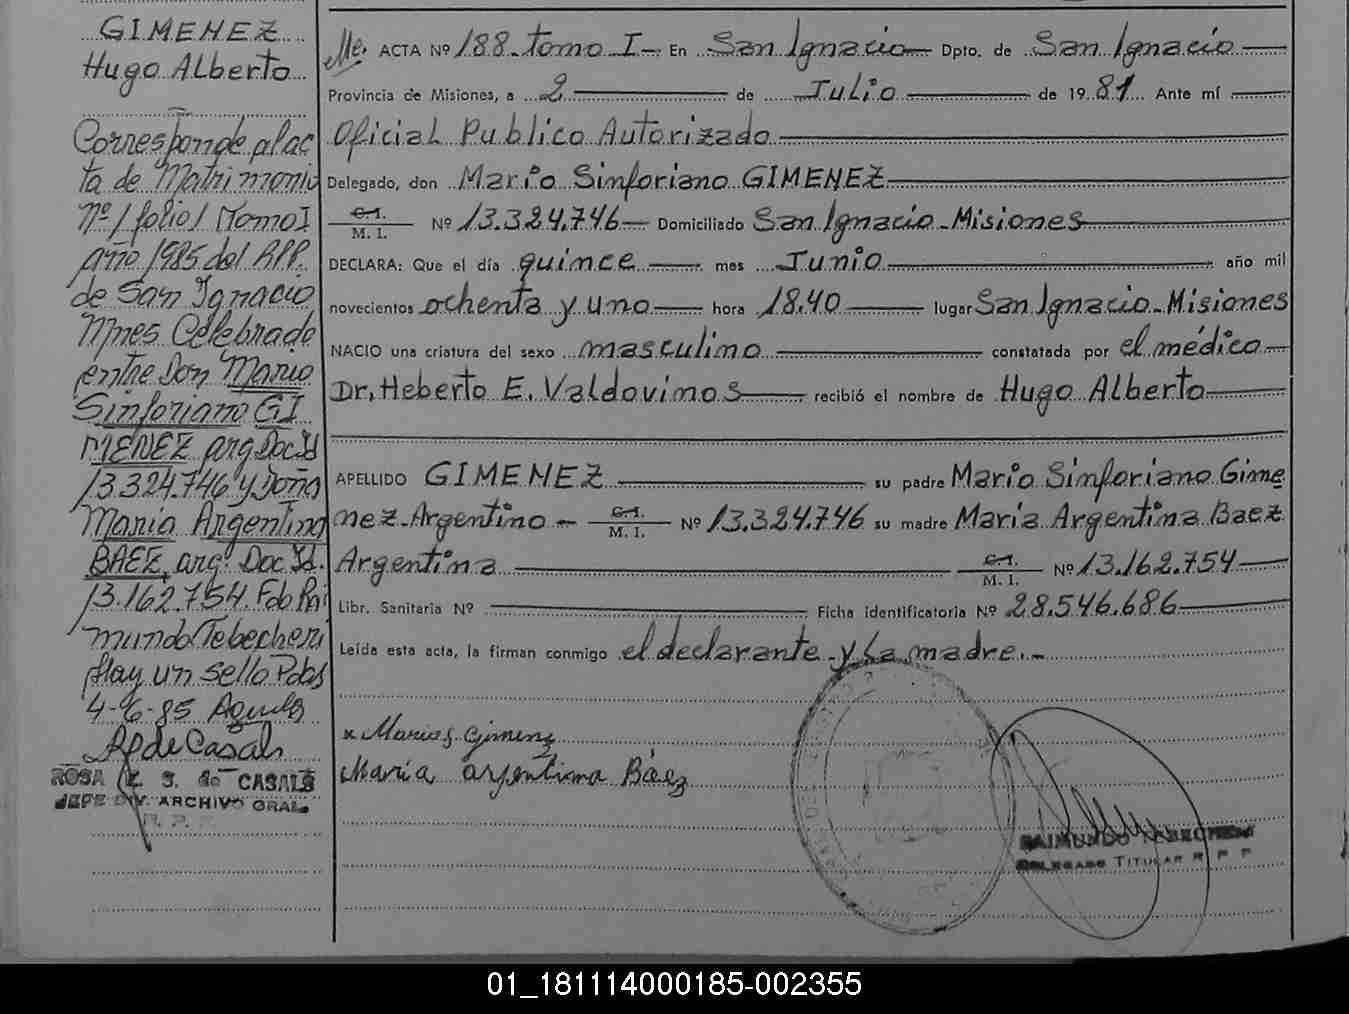 GIMENEZ
Hugo Alberto
Corresponde al ac
ta de Matrimonio
Nº 1 folio 1 Tomo I
año 1985 del RPP.
de San Ignacio
Mnes Celebrado
entre Don Mario
Sinforiano GI
MENEZ arg Doc Id
13.324.746 y Doña
Maria Argentina
BAEZ, arg. Doc Id.
13.162.754. Fdo Rai
mundo Tebecheri
Hay un sello Pdas
4-6-85
de Casals
ROSA E. S. de CASALS
JEFE DIV. ARCHIVO GRAL.
R. P. P.
ACTA Nº 188 - tomo I - En San Ignacio Dpto. de San Ignacio
Provincia de Misiones, a 2 de Julio de 1981 Ante mí
Oficial Publico Autorizado
Delegado, don Mario Sinforiano GIMENEZ
C.I. / M. I. Nº 13.324.746 Domiciliado San Ignacio - Misiones
DECLARA: Que el día quince mes Junio año mil
novecientos ochenta y uno hora 18.40 lugar San Ignacio - Misiones
NACIO una criatura del sexo masculino constatada por el médico
Dr, Heberto E. Valdovinos recibió el nombre de Hugo Alberto
APELLIDO GIMENEZ su padre Mario Sinforiano Gime
nez - Argentino - C.I. / M. I. Nº 13.324.746 su madre Maria Argentina Baez
Argentina C.I. / M. I. Nº 13.162.754
Libr. Sanitaria Nº Ficha identificatoria Nº 28.546.686
Leída esta acta, la firman conmigo el declarante y la madre. -
x Mario S. Gimenez
Maria argentina Báez
RAIMUNDO TEBECHERI
DELEGADO TITULAR R P P
01_181114000185-002355